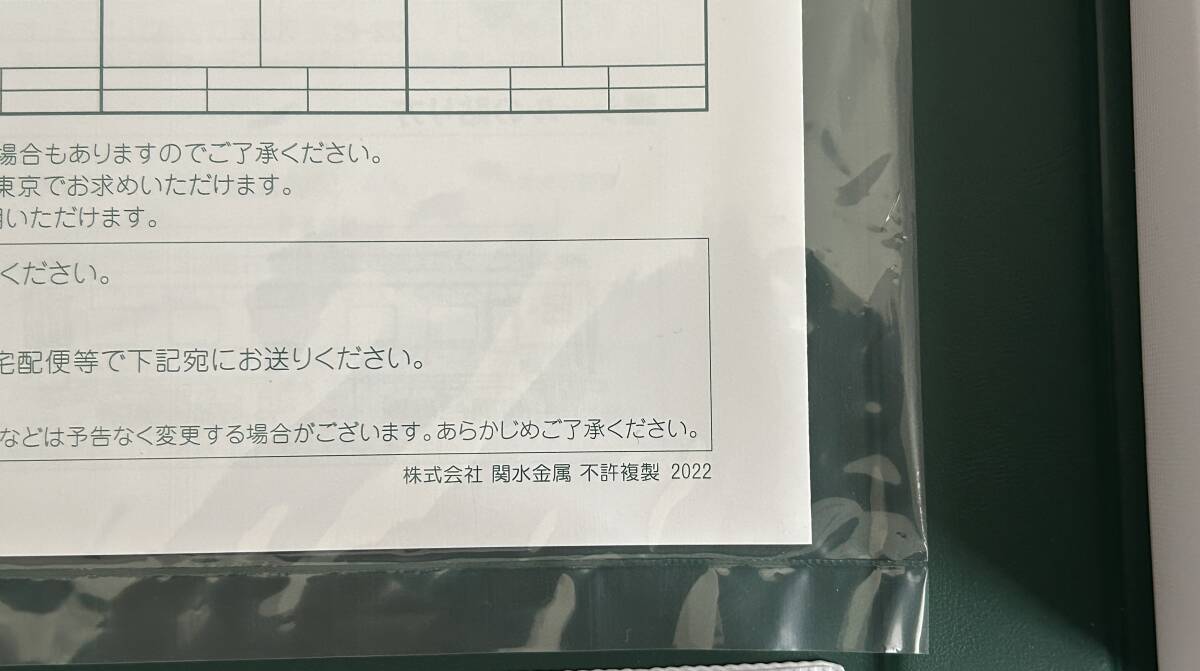 場合もありますのでご了承ください。
東京でお求めいただけます。
いただけます。
ください。
宅配便等で下記宛にお送りください。
などは予告なく変更する場合がございます。あらかじめご了承ください。
株式会社 関水金属 不許複製 2022